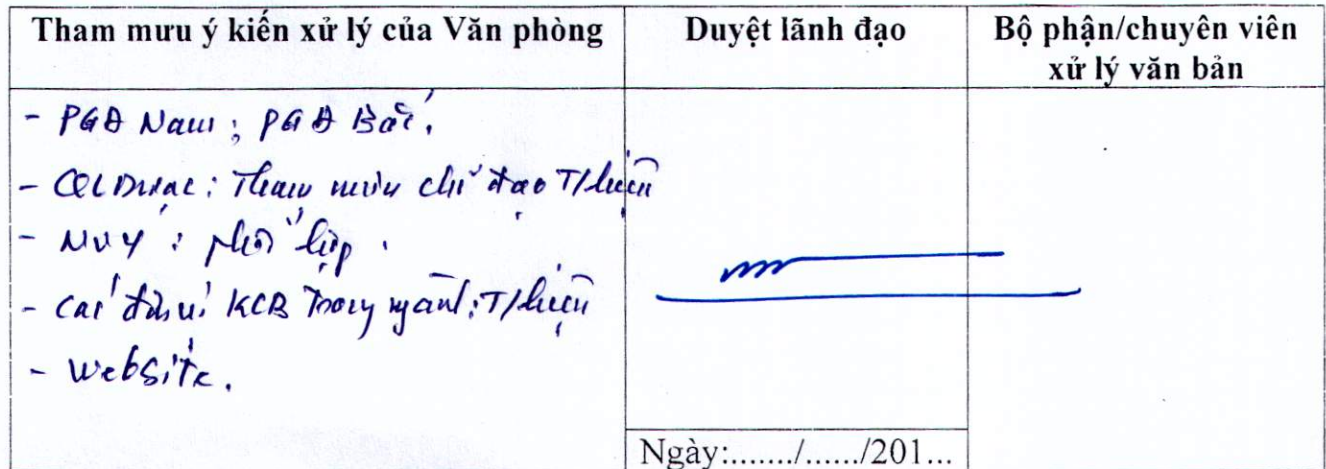 Tham mưu ý kiến xử lý của Văn phòng
Duyệt lãnh đạo
Bộ phận/chuyên viên
xử lý văn bản
- PGĐ Nam; PGĐ Bắc.
- QLDược: Tham mưu chỉ đạo T/hiện
- NVY: phối hợp.
- Các đơn vị KCB trong ngành: T/hiện
- Website.
Ngày:......./....../201...